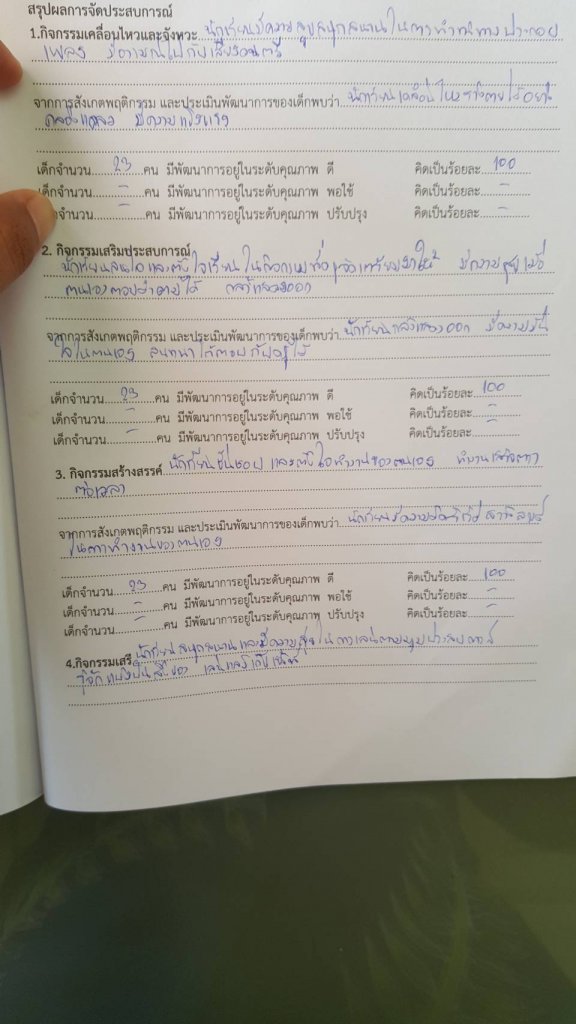 สรุปผลการจัดประสบการณ์
1.กิจกรรมเคลื่อนไหวและจังหวะ นักเรียนมีความสุขสนุกสนานในการทำท่าทางประกอบ
เพลง มีอารมณ์ไปกับเสียงดนตรี
จากการสังเกตพฤติกรรม และประเมินพัฒนาการของเด็กพบว่า นักเรียนเคลื่อนไหวร่างกายได้อย่าง
คล่องแคล่ว มีความแข็งแรง
เด็กจำนวน 23 คน มีพัฒนาการอยู่ในระดับคุณภาพ ดี คิดเป็นร้อยละ 100
เด็กจำนวน - คน มีพัฒนาการอยู่ในระดับคุณภาพ พอใช้ คิดเป็นร้อยละ -
จำนวน - คน มีพัฒนาการอยู่ในระดับคุณภาพ ปรับปรุง คิดเป็นร้อยละ -
2. กิจกรรมเสริมประสบการณ์
นักเรียนสนใจและตั้งใจเรียน มีความสุขเมื่อ
ตนเองตอบคำถามได้ กล้าแสดงออก
จากการสังเกตพฤติกรรม และประเมินพัฒนาการของเด็กพบว่า นักเรียนกล้าแสดงออก มีความมั่น
ใจในตนเอง สนทนาโต้ตอบกับครูได้
เด็กจำนวน 23 คน มีพัฒนาการอยู่ในระดับคุณภาพ ดี คิดเป็นร้อยละ 100
เด็กจำนวน - คน มีพัฒนาการอยู่ในระดับคุณภาพ พอใช้ คิดเป็นร้อยละ -
เด็กจำนวน - คน มีพัฒนาการอยู่ในระดับคุณภาพ ปรับปรุง คิดเป็นร้อยละ -
3. กิจกรรมสร้างสรรค์ นักเรียนชื่นชอบและตั้งใจทำงานของตนเอง ทำงานเสร็จตาม
เวลา
จากการสังเกตพฤติกรรม และประเมินพัฒนาการของเด็กพบว่า นักเรียนมีความคิดริเริ่มสร้างสรรค์
ในการทำงานของตนเอง
เด็กจำนวน 23 คน มีพัฒนาการอยู่ในระดับคุณภาพ ดี คิดเป็นร้อยละ 100
เด็กจำนวน - คน มีพัฒนาการอยู่ในระดับคุณภาพ พอใช้ คิดเป็นร้อยละ -
เด็กจำนวน - คน มีพัฒนาการอยู่ในระดับคุณภาพ ปรับปรุง คิดเป็นร้อยละ -
4.กิจกรรมเสรี นักเรียนสนุกสนานและมีความสุขในการเล่นตามมุมประสบการณ์
รู้จักแบ่งปันสิ่งของ เล่นแล้วเก็บ